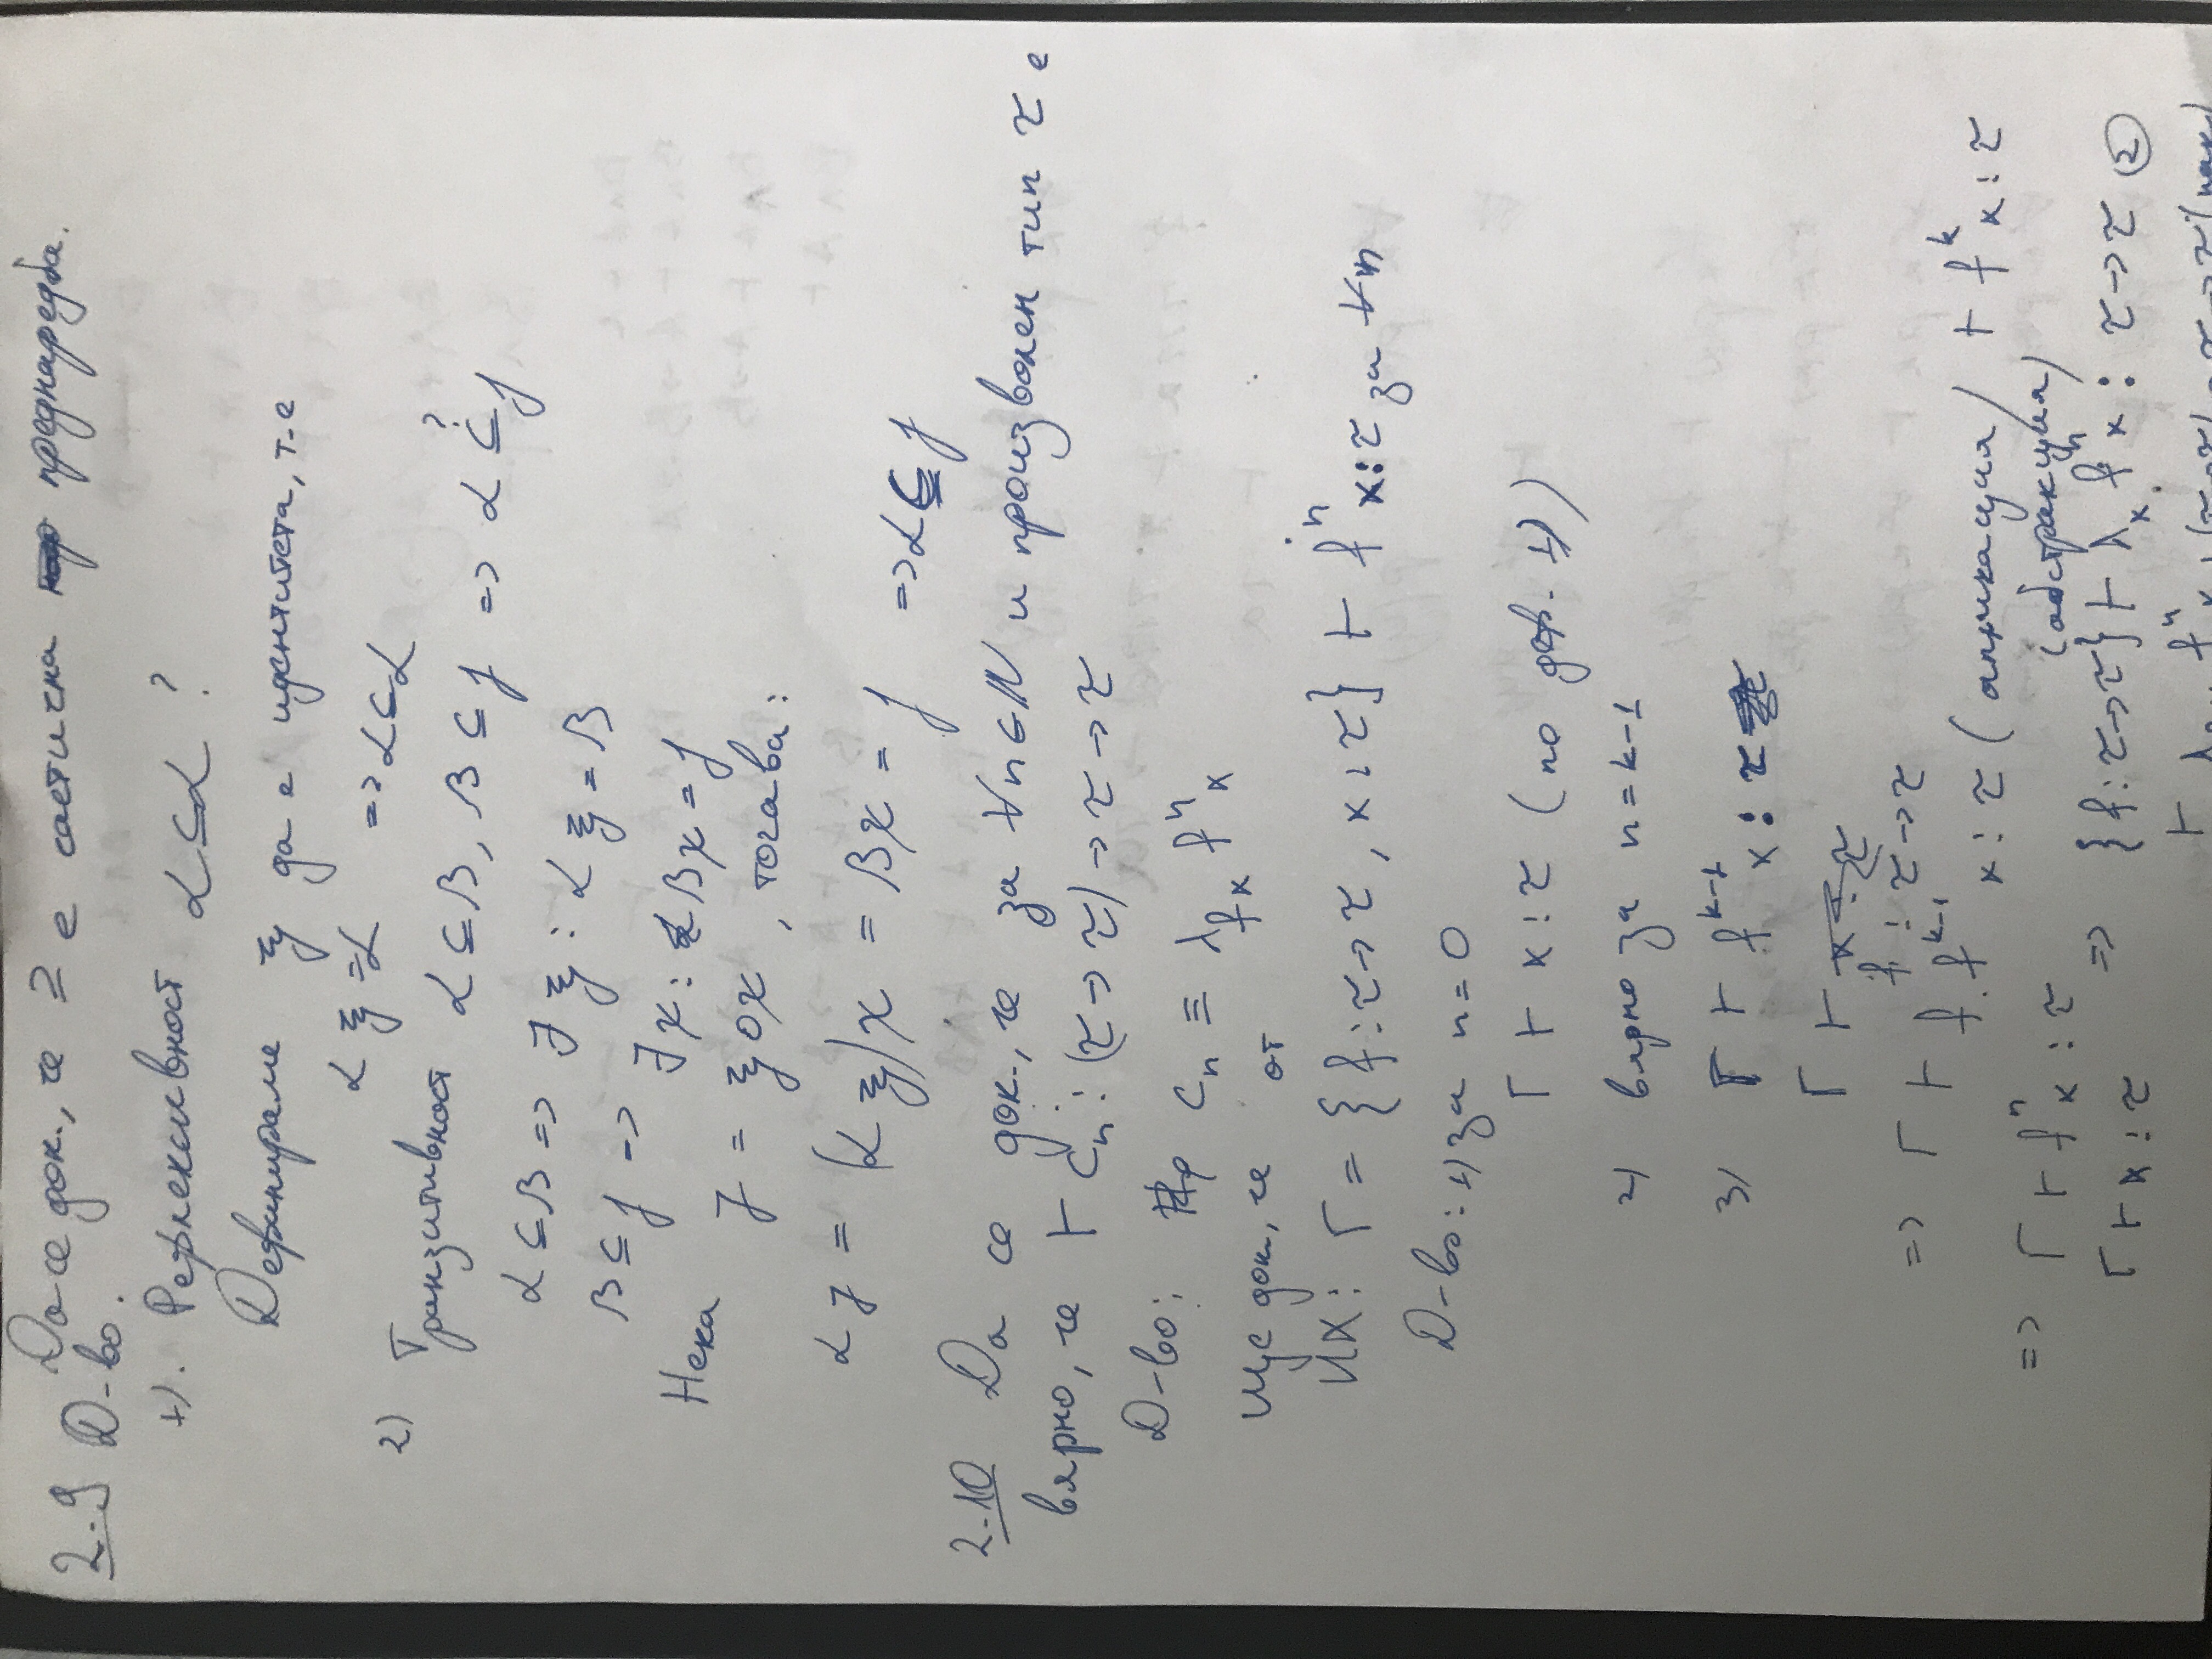 Да се док., че ⊇ е частична преднаредба.
2.9 Д-во.
1). Рефлексивност α ⊆ α ?
Дефинираме ξ да е идентитета, т.е
α ξ = α => α ⊆ α
2) Транзитивност α ⊆ β, β ⊆ γ => α ⊆ γ ?
α ⊆ β => ∃ ξ : α ξ = β
β ⊆ γ => ∃ χ : β χ = γ
Нека η = ξ o χ, тогава:
α η = (α ξ) χ = β χ = γ => α ⊆ γ
2.10 Да се док., че за ∀n∈ℕ и произволен тип τ е
вярно, че ⊢ cₙ : (τ → τ) → τ → τ
Д-во: cₙ ≡ λ_fx fⁿx
Ще док., че от
ИХ: Γ = {f : τ → τ, x : τ} ⊢ fⁿx : τ за ∀n
Д-во: 1) за n = 0
Γ ⊢ x : τ (по деф. 1))
2) вярно за n = k-1
3) Γ ⊢ f^{k-1} x : τ
Γ ⊢
f : τ → τ
=> Γ ⊢ f . f^{k-1} x : τ (апликация) ⊢ f^k x : τ
=> Γ ⊢ fⁿx : τ (абстракция)
Γ ⊢ x : τ => {f : τ → τ} ⊢ λ_x fⁿx : τ → τ ②
⊢